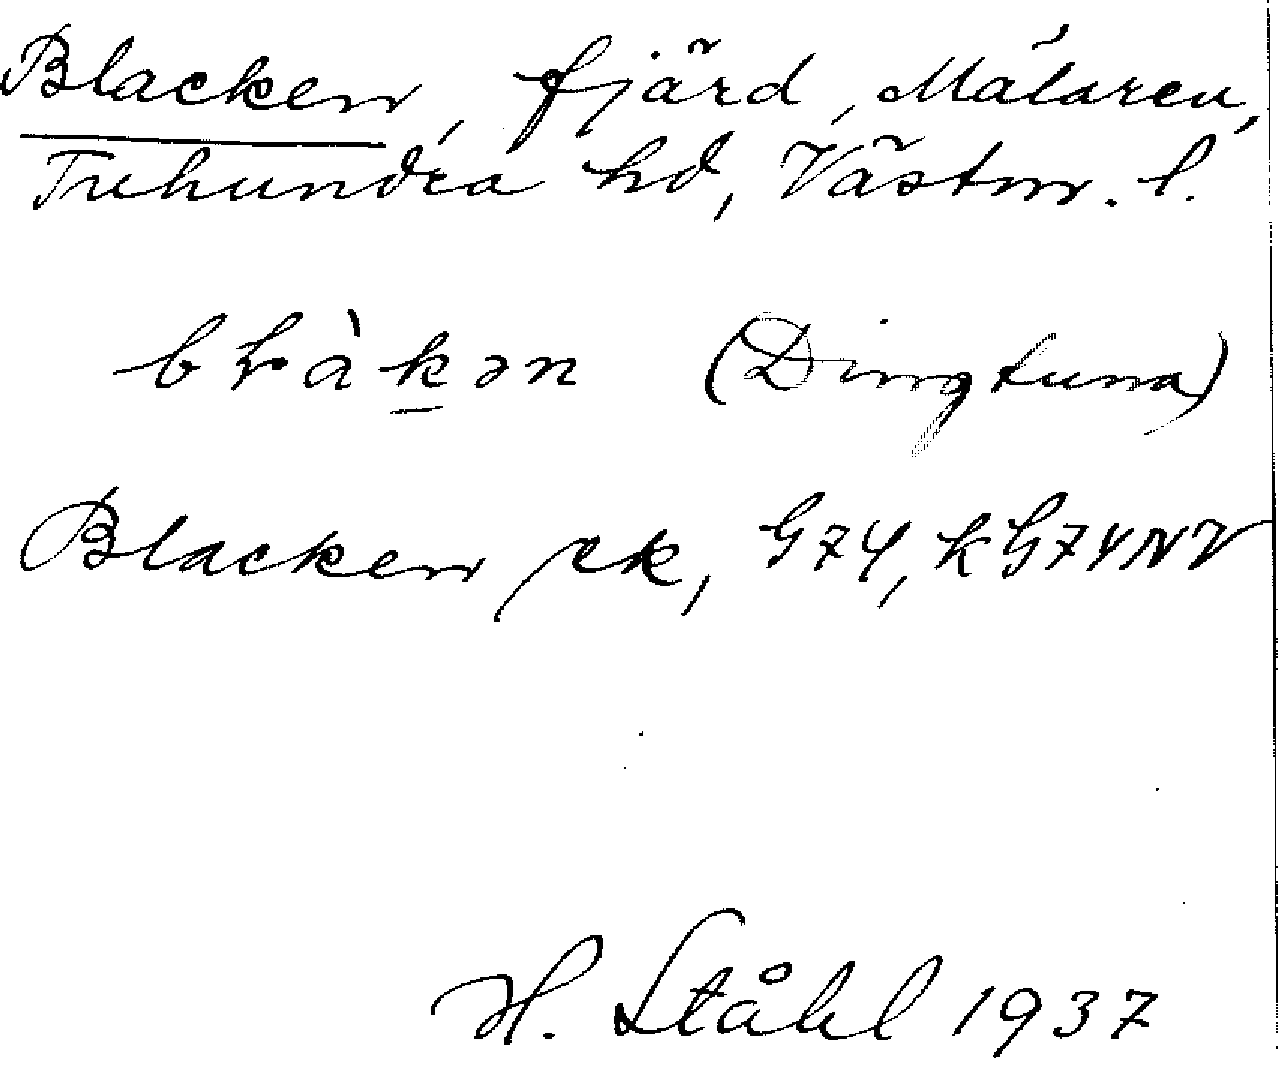 Blacken, fjärd, Mälaren,
Tuhundra hd, Västm. l.
blàkən (Dingtuna)
Blacken ek, G74, kG74NV
H. Ståhl 1937